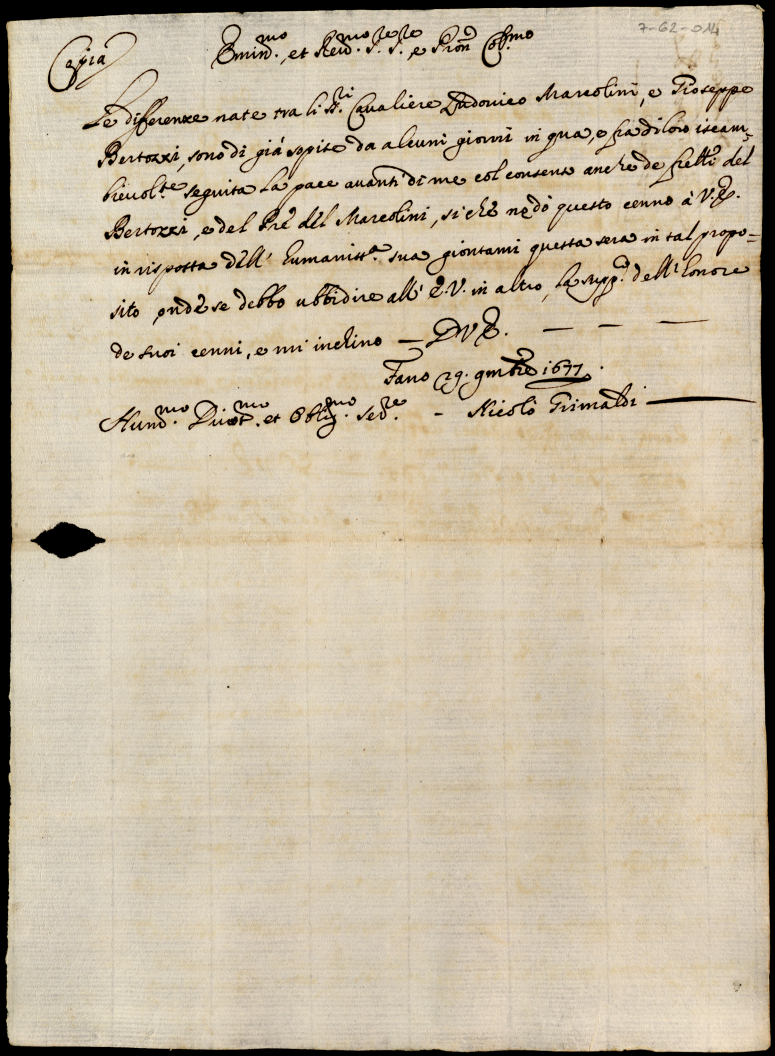 7-62-014
Copia
Emin.mo, et Rev.mo S.re S.re, e Pron Col.mo
Le differenze nate tra li SS.ri Cavaliere Ludovico Marcolini, e Gioseppe
Bertozzi, sono di già sopite da alcuni giorni in qua, e fra di loro iscam-
bievolm.te seguita la pace avanti di me col consenso anche de fretti del
Bertozzi, e del Pre del Marcolini, si che ne dò questo cenno à V.E.
in risposta dell' humaniss.a sua giontami questa sera in tal propo=
sito, onde se debbo ubbidire all' E.V. in altro, la supp.o dell' honore
de suoi cenni, e mi inchino — D V E. — — —
Fano 29. 9mbre 1677.
Hum.mo Divot.mo et Oblig.mo Ser.re - Nicolò Grimaldi —